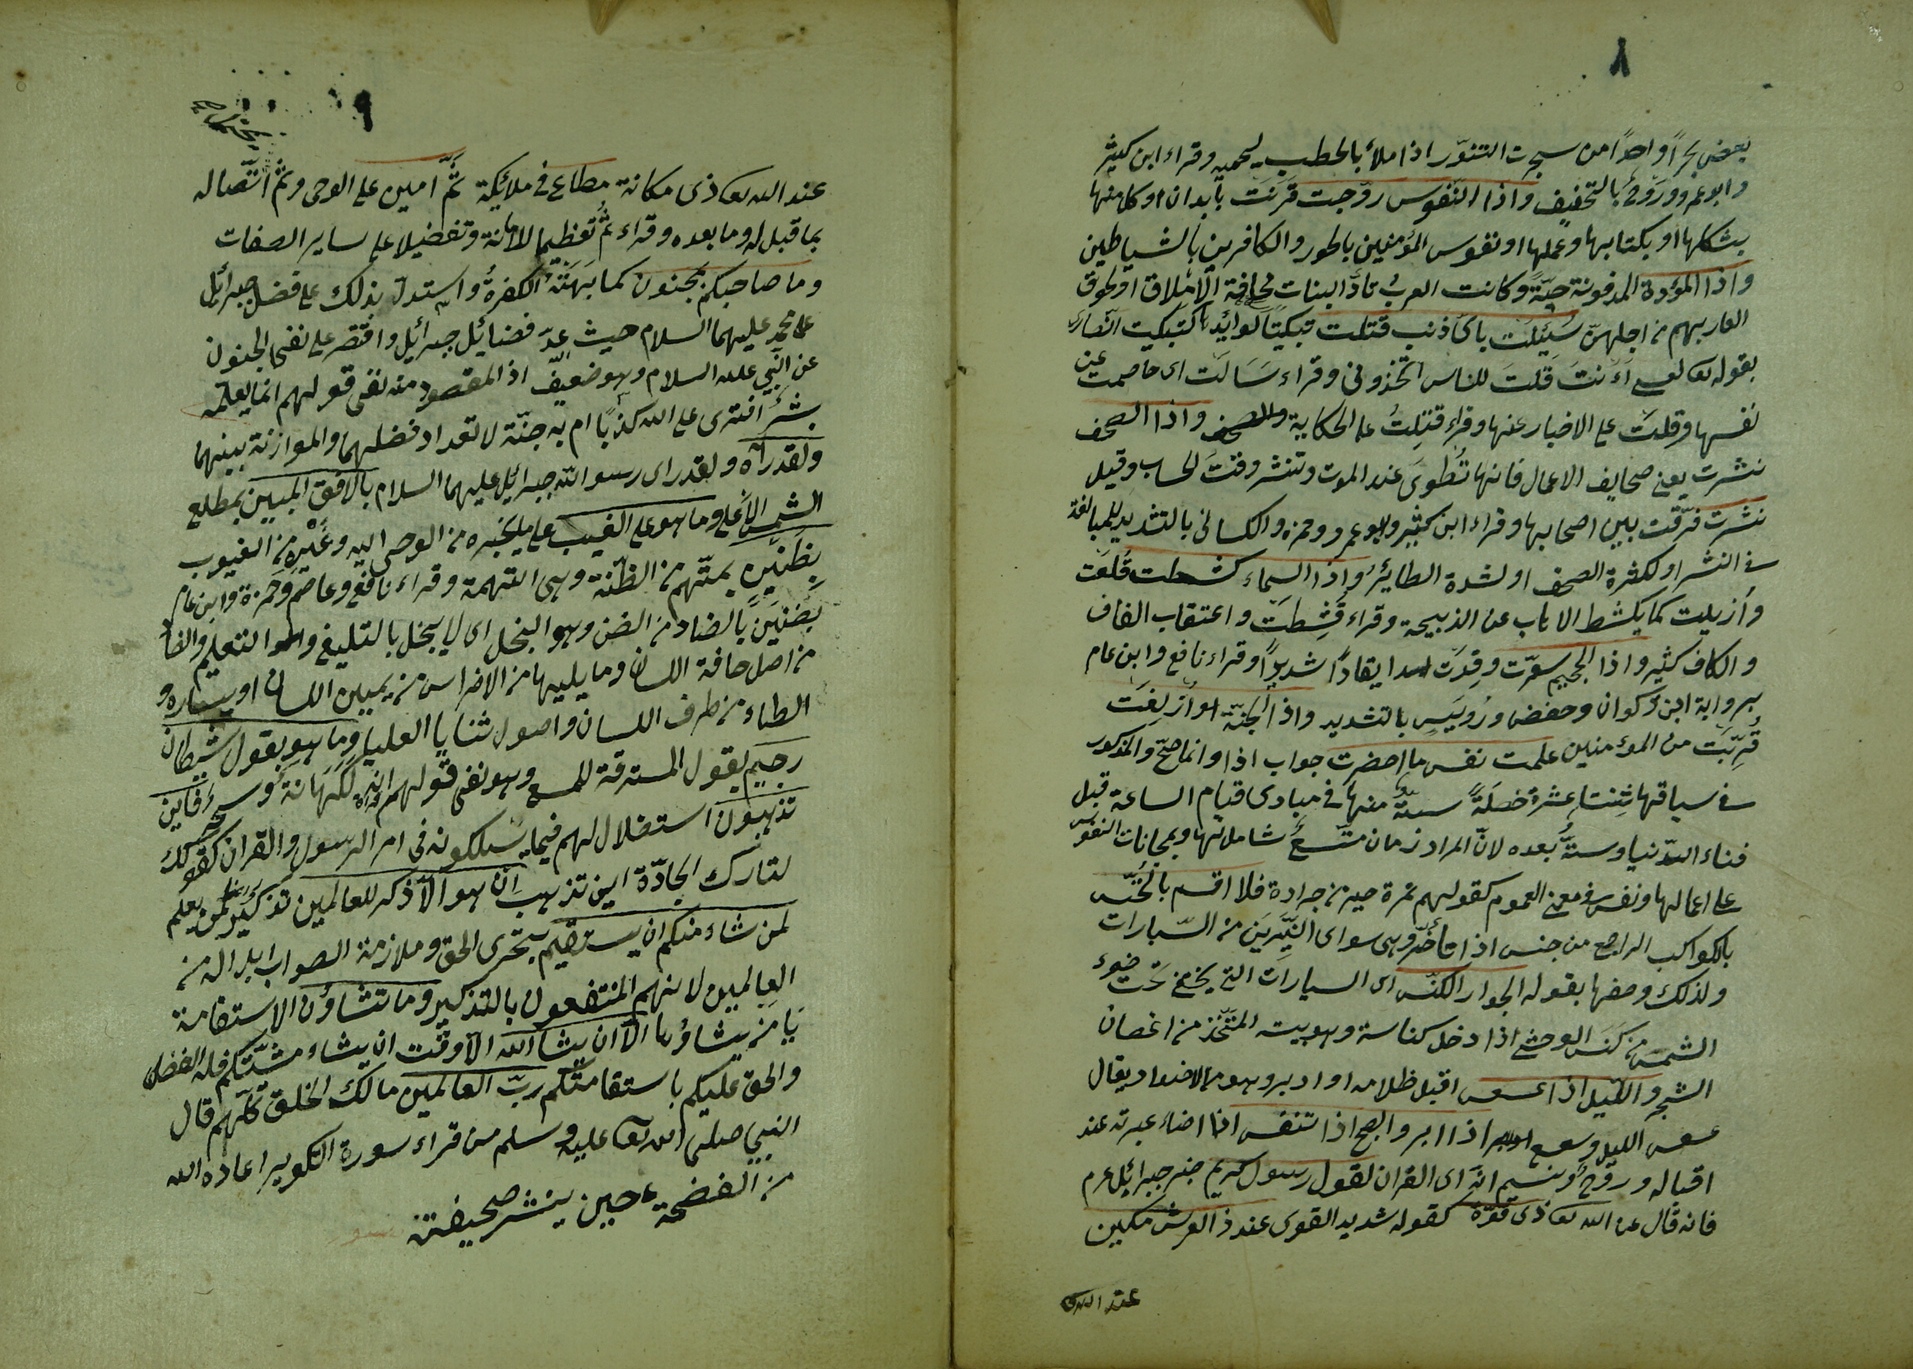 ٨
بعض بحرا واحدا من سجرت التنور اذا ملأ بالحطب ليحميه وقراء ابن كثير
وابو عمرو وروح بالتخفيف واذا النفوس زوجت قرنت بابدان او كل منها
بشكلها او بكتابها وعملها او نفوس المؤمنين بالحور والكافرين بالشياطين
واذا الموؤدة المدفونة حيّة وكانت العرب تأد البنات مخافة الاملاق او لحوق
العار بهم من اجلهن سئلت باى ذنب قتلت تبكيتا لوائدها كتبكيت النصارى
بقوله تعالى لعيسى أأنت قلت للناس اتخذونى وقراء سألت اى خاصمت عن
نفسها وقتلت على الاخبار عنها وقراء قتلت على الحكاية واذا الصحف
نشرت يعنى صحايف الاعمال فانها تطوى عند الموت وتنشر وقت الحساب وقيل
نشرت فرّقت بين اصحابها وقراء ابن كثير وابو عمرو وحمزه والكسائى بالتشديد للمبالغة
فى النشر او لكثرة الصحف او لشدة التطاير واذا السماء كشطت قلعت
وازيلت كما يكشط الاهاب عن الذبيحة وقراء قشطت واعتقاب القاف
والكاف كثير واذا الجحيم سعّرت وقدت ايقادا شديدا وقراء نافع وابن عام
برواية ابن ذكوان وحفض ورويس بالتشديد واذا الجنة ازلفت
قرّبت من المؤمنين علمت نفس ما احضرت جواب اذا وانما صحّ والمذكور
فى سياقها ثنتا عشرة خصلة ستة منها فى مبادى قيام الساعة قبل
فناء الدنيا وستة بعده لانّ المراد زمان متسع شامل لها ومجازات النفوس
على اعمالها ونفس فى معنى العموم كقولهم تمرة خير من جرادة فلا اقسم بالخنّس
بالكواكب الراجع من خنس اذا تأخّر وهى سواى النيّرين من السيّارات
ولذلك وصفها بقوله الجوار الكنّس اى السيارات التى يختفى تحت ضوء
الشمس من كنس الوحشى اذا دخل كناسة وهو بيته المتّخذ من اغصان
الشجر والليل اذا عسعس اقبل ظلامه او ادبر وهو من الاضداد يقال
عسعس الليل وسعسع اذا ادبر والصبح اذا تنفس اذا اضاء غبرته عند
اقباله وروح ونسيم انه اى القران لقول رسول كريم يعنى جبرائيل عم
فانه قال عن الله تعا ذى قوة كقوله شديد القوى عند ذى العرش مكين
عند الله
٩
عند الله تعا ذى مكانة مطاع فى ملائكة ثَمّ امين على الوحى وثمّ اتّصاله
بما قبله وما بعده وقراء ثُمّ تعظيما للامانة وتفضيلا على ساير الصفات
وما صاحبكم بمجنون كما بهته الكفرة واستدل بذلك على فضل جبرائيل
على محمد عليهما السلام حيث عدّ فضائل جبرائيل واقتصر على نفى الجنون
عن النّبي عليه السلام وهو ضعيف اذ المقصود منه نفى قولهم انما يعلمه
بشر افترى على الله كذبا ام به جنّة لا تعداد فضلهما والموازنة بينهما
ولقد رآه ولقد راى رسول الله جبرائيل عليهما السلام بالافق المبين بمطلع
الشمس الاعلى وما هو على الغيب على ما يخبره من الوحى اليه وغيره من الغيوب
بظنين بمتّهم من الظنّة وهى التهمة وقراء نافع وعاصم وحمزة وابن عام
بضنين بالضاد من الضن وهو البخل اى لا يبخل بالتبليغ والتعليم والضاد
من اصل حافة اللسان وما يليها من الاضراس من يمين اللسان او يساره و
الظاء من طرف اللسان واصول ثنايا العليا وما هو بقول شيطان
رجيم بقول المسترقة للسمع وهو نفى قولهم انه لكهانة وسحر فاين
تذهبون استضلال لهم فيما يسلكونه فى امر الرسول والقران كقولك
لتارك الجادّة اين تذهب ان هو الا ذكر للعالمين تذكير لمن يعلم
لمن شاء منكم ان يستقيم بتحرى الحق وملازمة الصواب ابداله من
العالمين لانهم المنتفعون بالتذكير وما تشاؤن الاستقامة
يا من يشاؤها الا ان يشاء الله الا وقت ان يشاء مشيّتكم فله الفضل
والحق عليكم باستقامتكم ربّ العالمين مالك الخلق كلّهم قال
النبي صلى الله تعا عليه وسلم من قراء سورة التكوير اعاذه الله
من الفضحة حين ينشر صحيفته